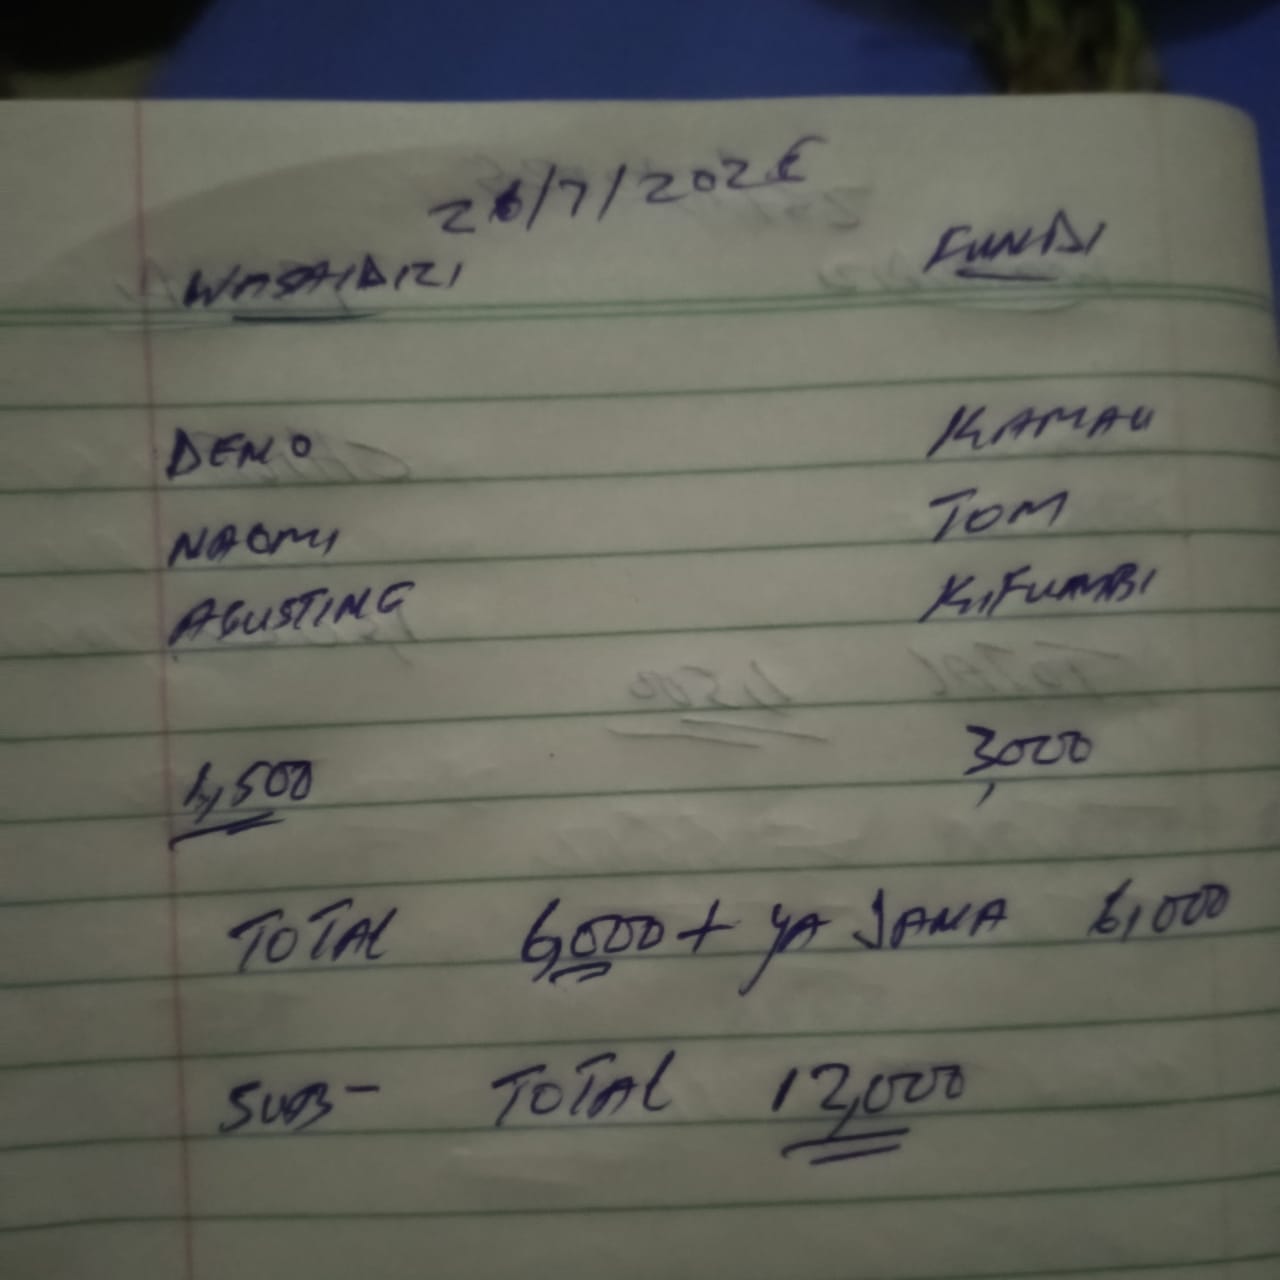 26/7/2026
WASAIDIZI FUNDI
DENO KAMAU
NAOMI TOM
AGUSTINE KIFUMBI
1,500 3,000
TOTAL 6,000 + YA JANA 6,000
SUB- TOTAL 12,000